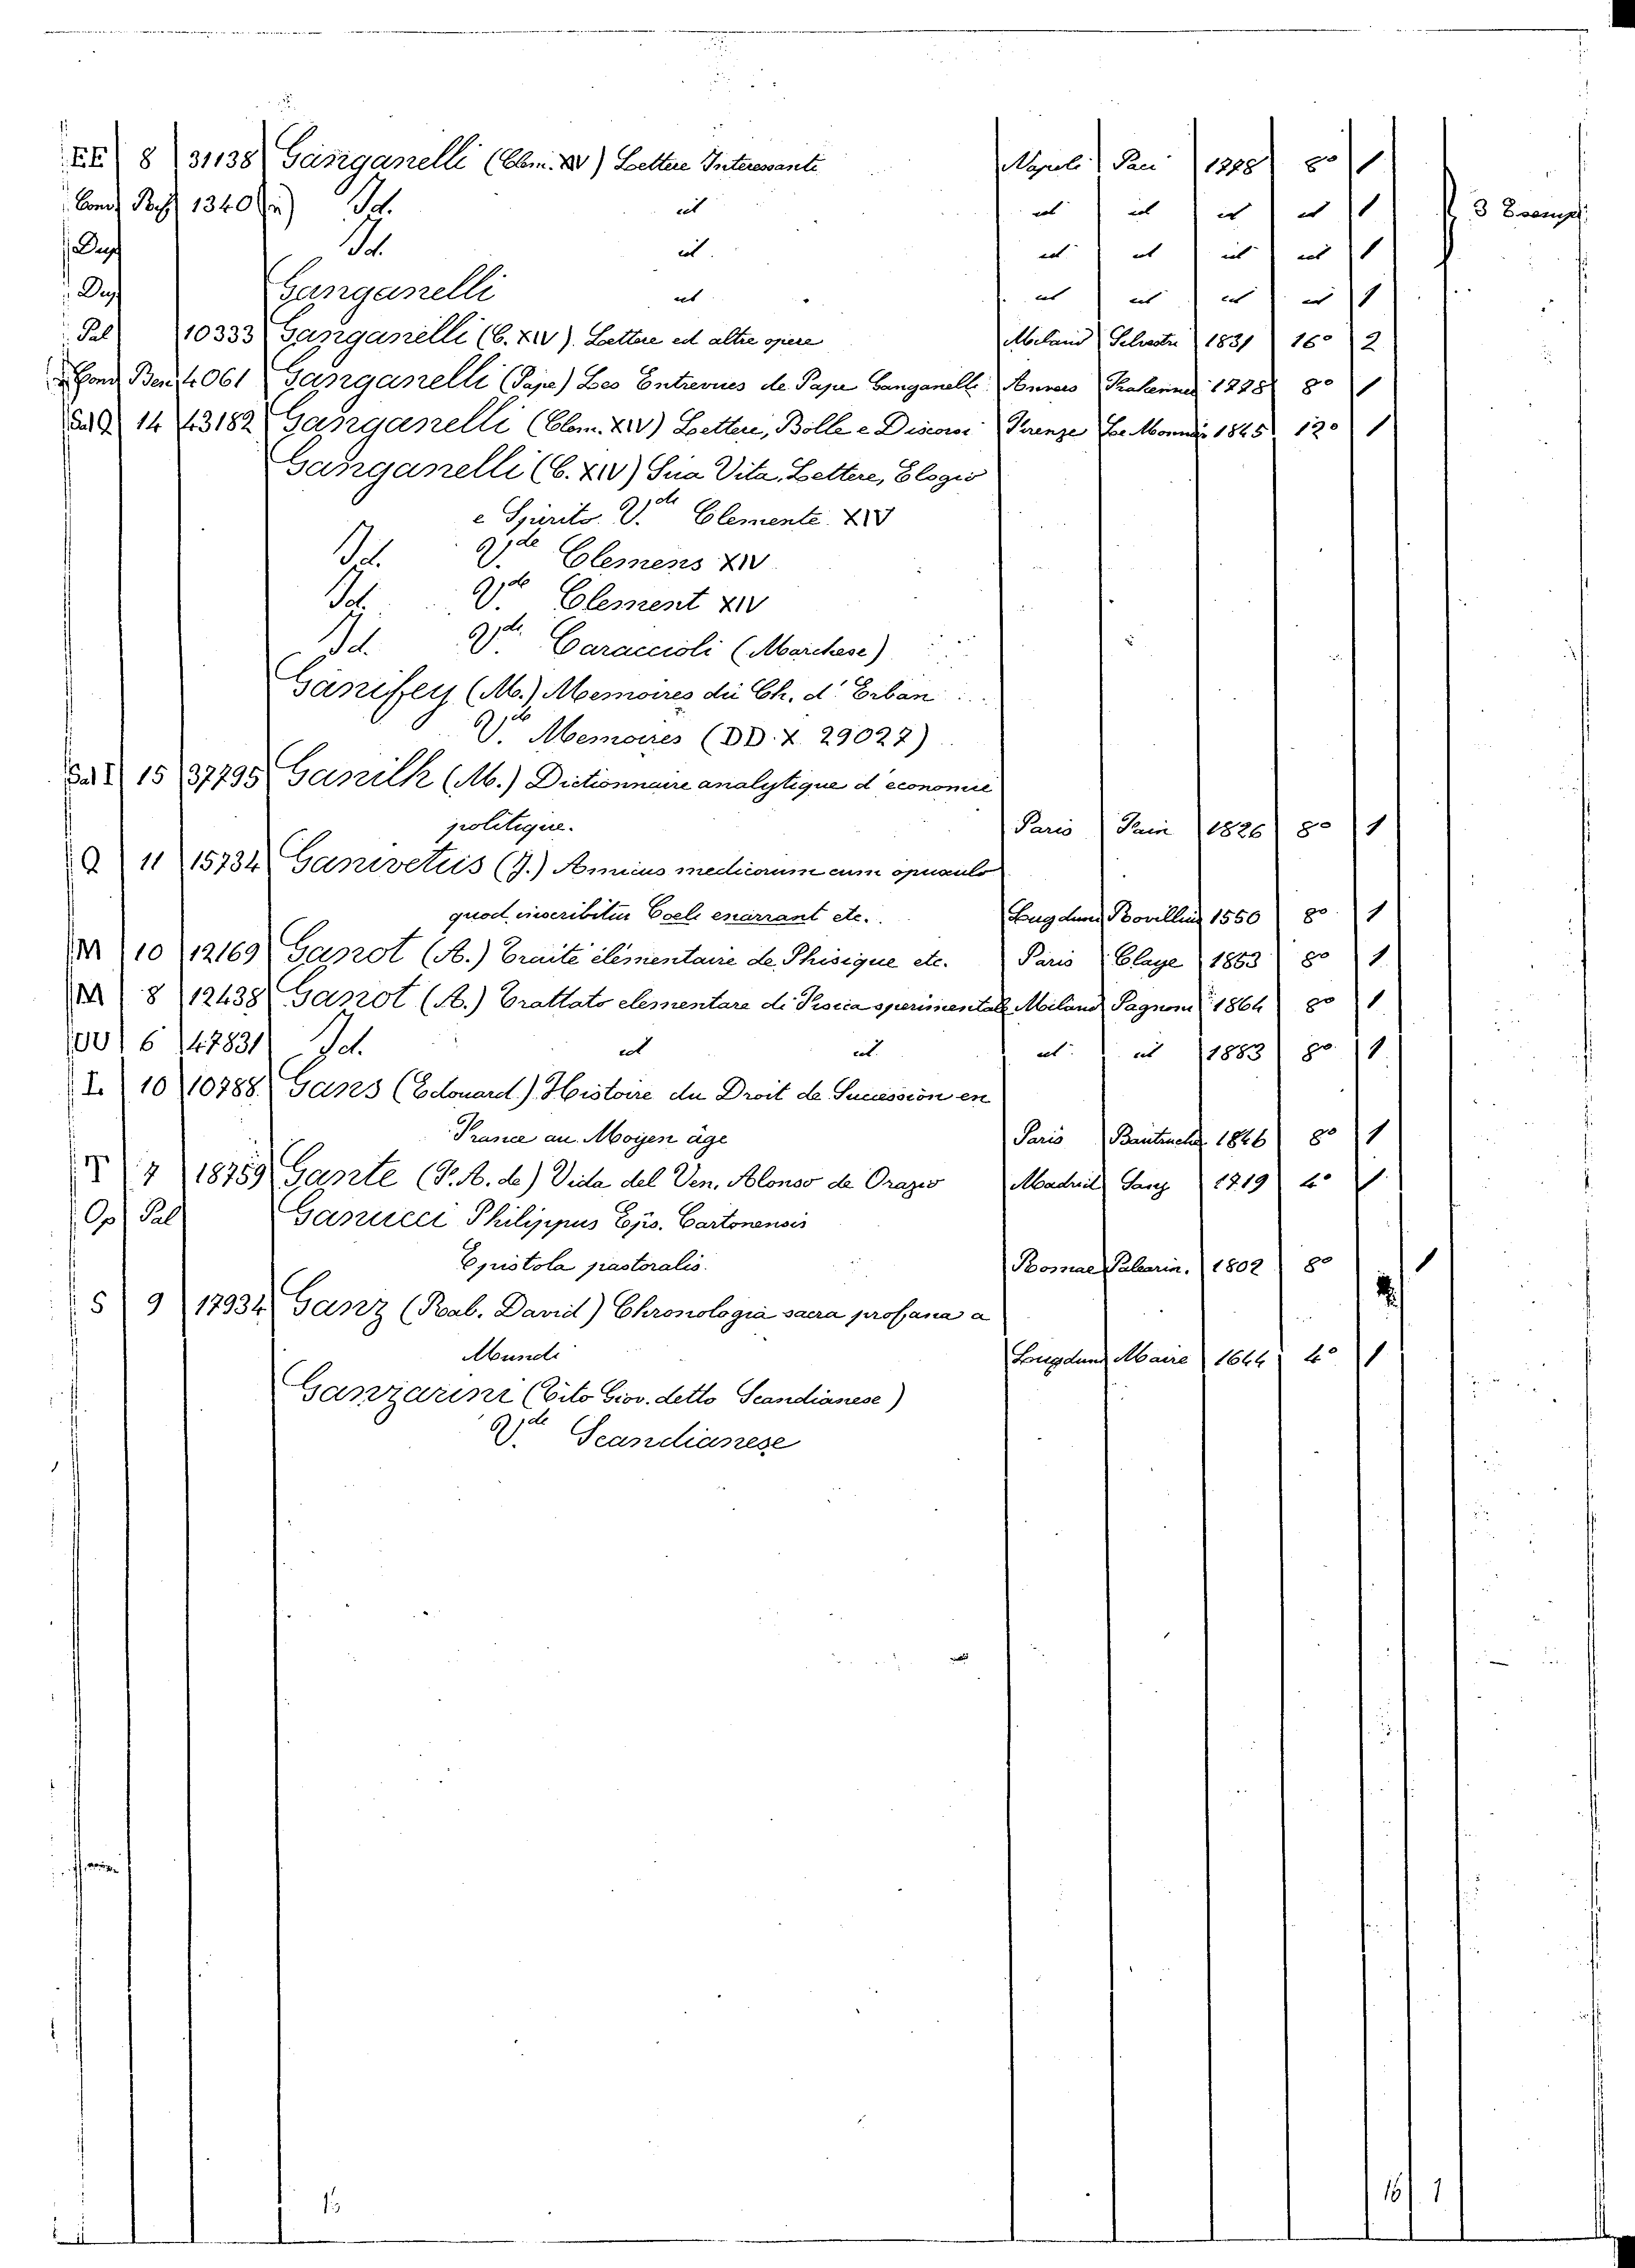 EE 8 31138 Ganganelli (Clem. XIV) Lettere Interessante Napoli Paci 1778 8° 1
1340 Id. id id id id id 1 3 Esempl.
Dup Id. id. id id id id 1
Dup Ganganelli id id id id id 1
Pal 10333 Ganganelli (C. XIV). Lettere ed altre opere Milano Silvestri 1831 16° 2
Ben 4061 Ganganelli (Pape) Les Entrevues de Pape Ganganelli Anvers 1778 8° 1
Sal Q 14 43182 Ganganelli (Clem. XIV) Lettere, Bolle e Discorsi Firenze Le Monnier 1845 12° 1
Ganganelli (C. XIV) Sua Vita, Lettere, Elogio
e Spirito. V.de Clemente XIV
Id. V.de Clemens XIV
Id. V.de Clement XIV
Id. V.de Caraccioli (Marchese)
Ganifey (M.) Memoires du Ch. d'Erban
V.de Memoires (DD. X. 29027)
Sal I 15 37795 Ganilh (M.) Dictionnaire analytique d'economie
politique. Paris Fain 1826 8° 1
Q 11 15734 Ganivetus (J.) Amicus medicorum cum opusculo
quod inscribitur Coeli enarrant etc. Lugduni Rovillius 1550 8° 1
M 10 12169 Ganot (A.) Traité élementaire de Phisique etc. Paris Claye 1853 8° 1
M 8 12438 Ganot (A.) Trattato elementare di Fisica sperimentale Milano Pagnoni 1864 8° 1
6 47831 Id. id id. id id 1883 8° 1
I. 10 10788 Gans (Edouard) Histoire du Droit de Succession en
France au Moyen âge Paris 1846 8° 1
T 7 18759 Gante (P. A. de) Vida del Ven. Alonso de Orazio Madrid Sanz 1719 4° 1
Op Pal Ganucci Philippus Eps. Cartonensis
Epistola pastoralis. Romae Palearin. 1802 8° 1
S 9 17934 Ganz (Rab. David) Chronologia sacra profana a
Mundi Lugduni Maire 1644 4° 1
Ganzarini (Tito Giov. detto Scandianese)
V.de Scandianese
16 1